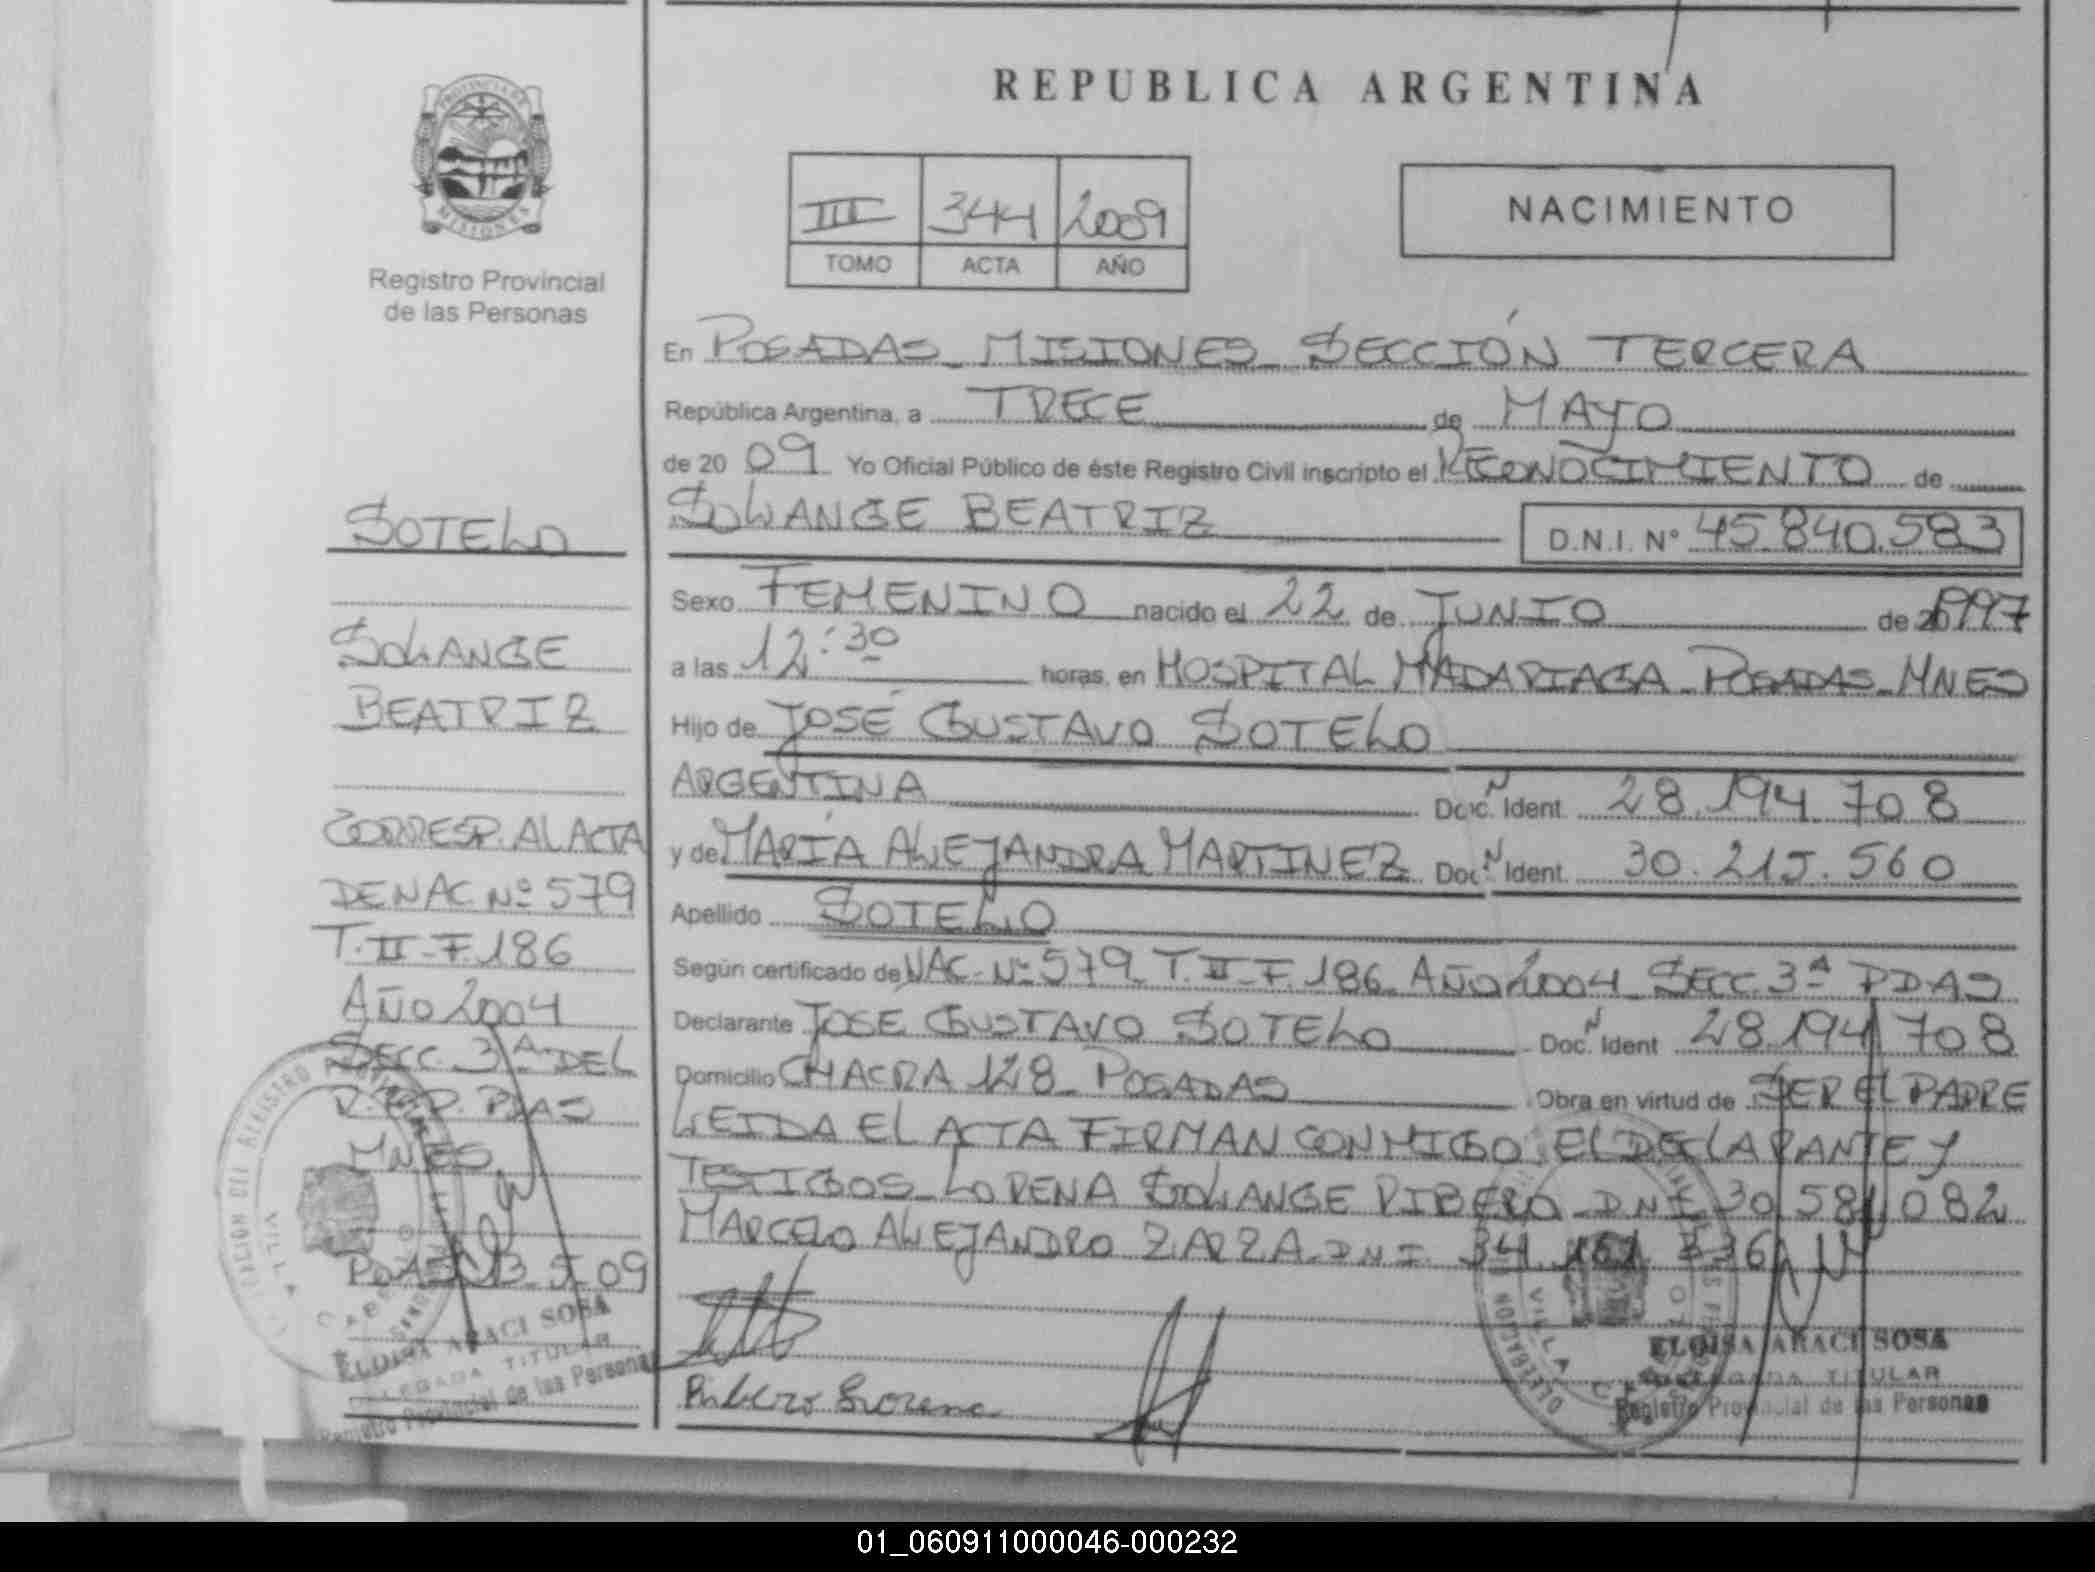 REPUBLICA ARGENTINA
PROVINCIA DE
MISIONES
Registro Provincial
de las Personas
III 344 2009
TOMO ACTA AÑO
NACIMIENTO
En POSADAS - MISIONES - SECCIÓN TERCERA
República Argentina, a TRECE de MAYO
de 2009 Yo Oficial Público de éste Registro Civil inscripto el RECONOCIMIENTO de
SOLANGE BEATRIZ D.N.I. N° 45.840.583
Sexo FEMENINO nacido el 22 de JUNIO de 1997
a las 12:30 horas, en HOSPITAL MADARIAGA - POSADAS - MNES
Hijo de JOSÉ GUSTAVO SOTELO
ARGENTINA Doc. Ident. 28.194.708
y de MARÍA ALEJANDRA MARTINEZ Doc. Ident. 30.215.560
Apellido SOTELO
Según certificado de NAC. Nº 579 - T. II - F. 186 - AÑO 2004 - SECC. 3ª PDAS
Declarante JOSE GUSTAVO SOTELO Doc. Ident 28.194.708
Domicilio CHACRA 128 - POSADAS Obra en virtud de SER EL PADRE
LEIDA EL ACTA FIRMAN CONMIGO, EL DECLARANTE Y
TESTIGOS - LORENA SOLANGE RIBERO - DNI 30.581.082
MARCELO ALEJANDRO ZARZA - DNI. 34.
Ribero Lorena
ELOISA ARACI SOSA
DELEGADA TITULAR
Registro Provincial de las Personas
SOTELO
SOLANGE
BEATRIZ
CORRESP. AL ACTA
DE NAC. Nº 579
T. II - F. 186
AÑO 2004
SECC. 3ª DEL
R. P. PDAS
MNES
PDAS 13-5-09
ELOISA ARACI SOSA
DELEGADA TITULAR
Registro Provincial de las Personas
01_060911000046-000232